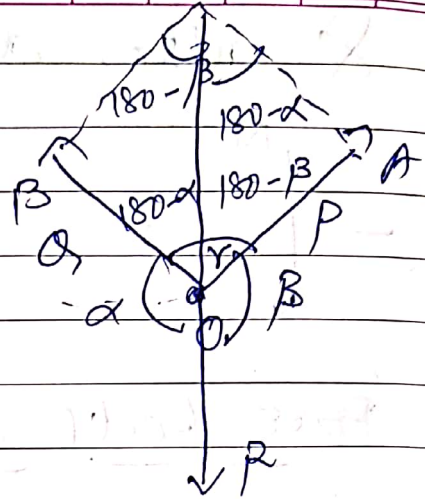 180-β
180-α
B
A
180-α
180-β
Q
P
γ
α
β
O
R